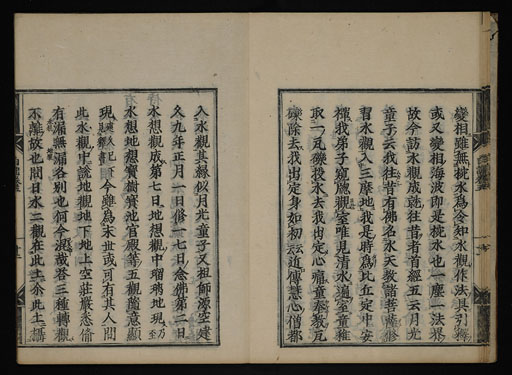 變相雖無桄水爲令知水觀作法具引釋
或又變相海波即是桄水也一塵一法界
故今訪水觀成就往昔者首經五云月光
童子云我往昔有佛名水天教諸菩薩修
習水觀入三摩地我是時爲比丘定中安
禪我弟子窺聽觀室唯見清水遍室童稚
取一瓦礫投水去我出定心痛童奉教瓦
礫除去我出定身如初云近傳慧心僧都
入水觀其縁似月光童子又祖師源空建
久九年正月一日修一七日念佛第二日
水想觀成第七日地想觀中瑠璃地現
水想地想寶樹寶池官殿等五觀隨意顯
現 今雖爲末世或可有其人問
此水觀中説地觀地下地上空莊嚴悉備
有漏無漏各別也何今 裁卷三種轉觀
不離故也問日水二觀在此土余此土攝